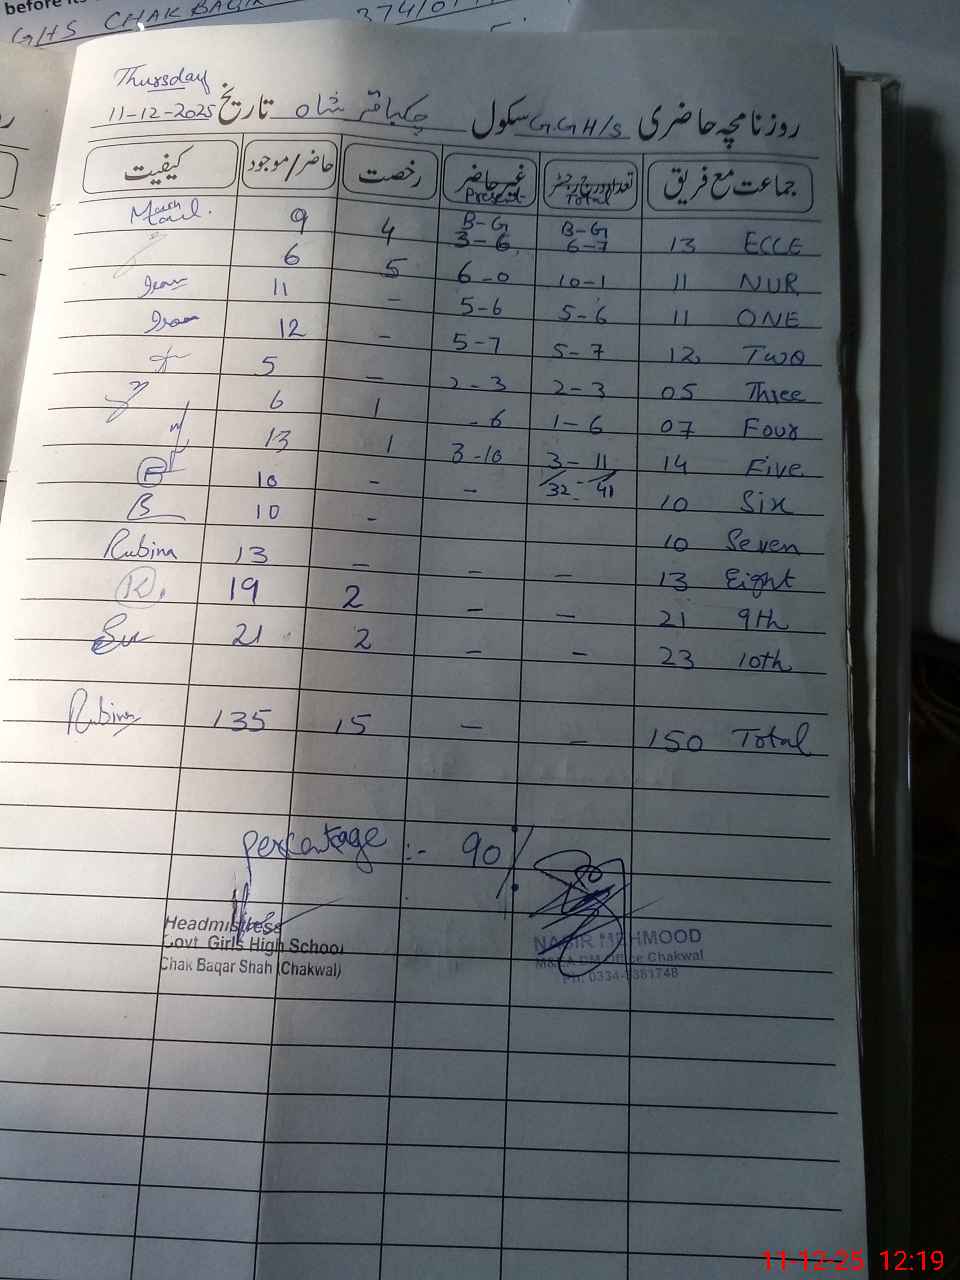 before its
GHS CHAK BAQIR
Thursday
روزنامچہ حاضری G.G.H/S سکول چکباقر شاہ تاریخ 11-12-2025
جماعت مع فریق تعداد درج رجٹر Total غیر حاضر Present رخصت حاضر/موجود کیفیت
ECCE 13 B-G 6-7 B-G 3-6 4 9
NUR 11 10-1 6-0 5 6
ONE 11 5-6 5-6 - 11
Two 12 5-7 5-7 - 12
Three 05 2-3 2-3 - 5
Four 07 1-6 -6 1 6
Five 14 3-11 3-10 1 13
Six 10 32-41 - - 10
Seven 10 - 10 B
Eight 13 - - - 13 Rubina
9th 21 - - 2 19 K.
10th 23 - - 2 21
Total 150 - - 15 135 Rubina
Percentage :- 90%
Headmistress
Govt. Girls High School
Chak Baqar Shah (Chakwal)
NASIR MEHMOOD
M&EA DM Office Chakwal
11-12-25 12:19